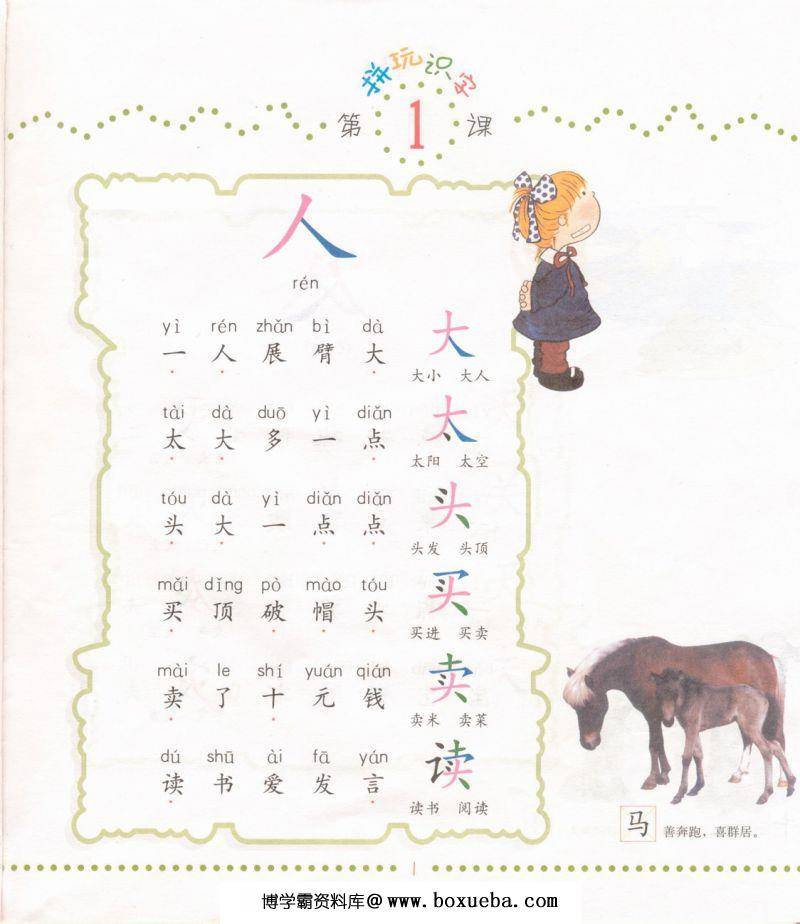 拼玩识字
第1课
人
rén
yì rén zhǎn bì dà
一人展臂大
大
大小 大人
tài dà duō yì diǎn
太大多一点
太
太阳 太空
tóu dà yì diǎn diǎn
头大一点点
头
头发 头顶
mǎi dǐng pò mào tóu
买顶破帽头
买
买进 买卖
mài le shí yuán qián
卖了十元钱
卖
卖米 卖菜
dú shū ài fā yán
读书爱发言
读
读书 阅读
马 善奔跑，喜群居。
1
博学霸资料库@www.boxueba.com